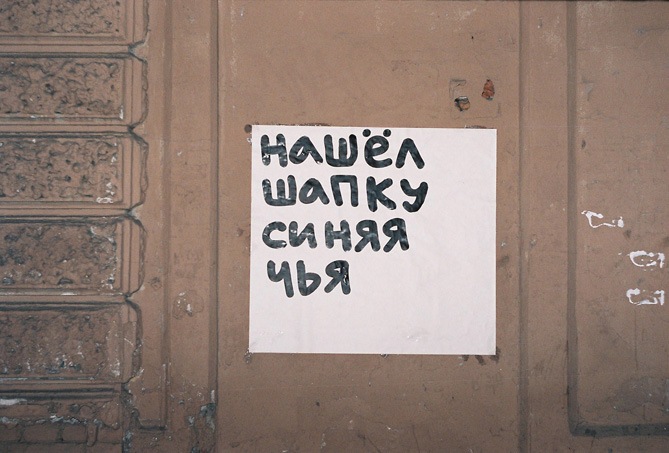 нашёл
шапку
синяя
чья